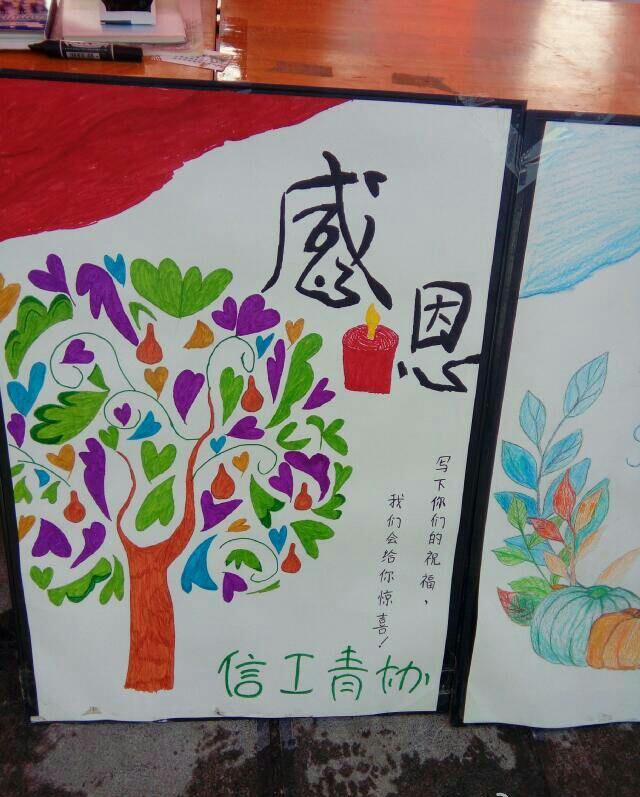 感恩
写下你们的祝福，
我们会给你惊喜！
信工青协